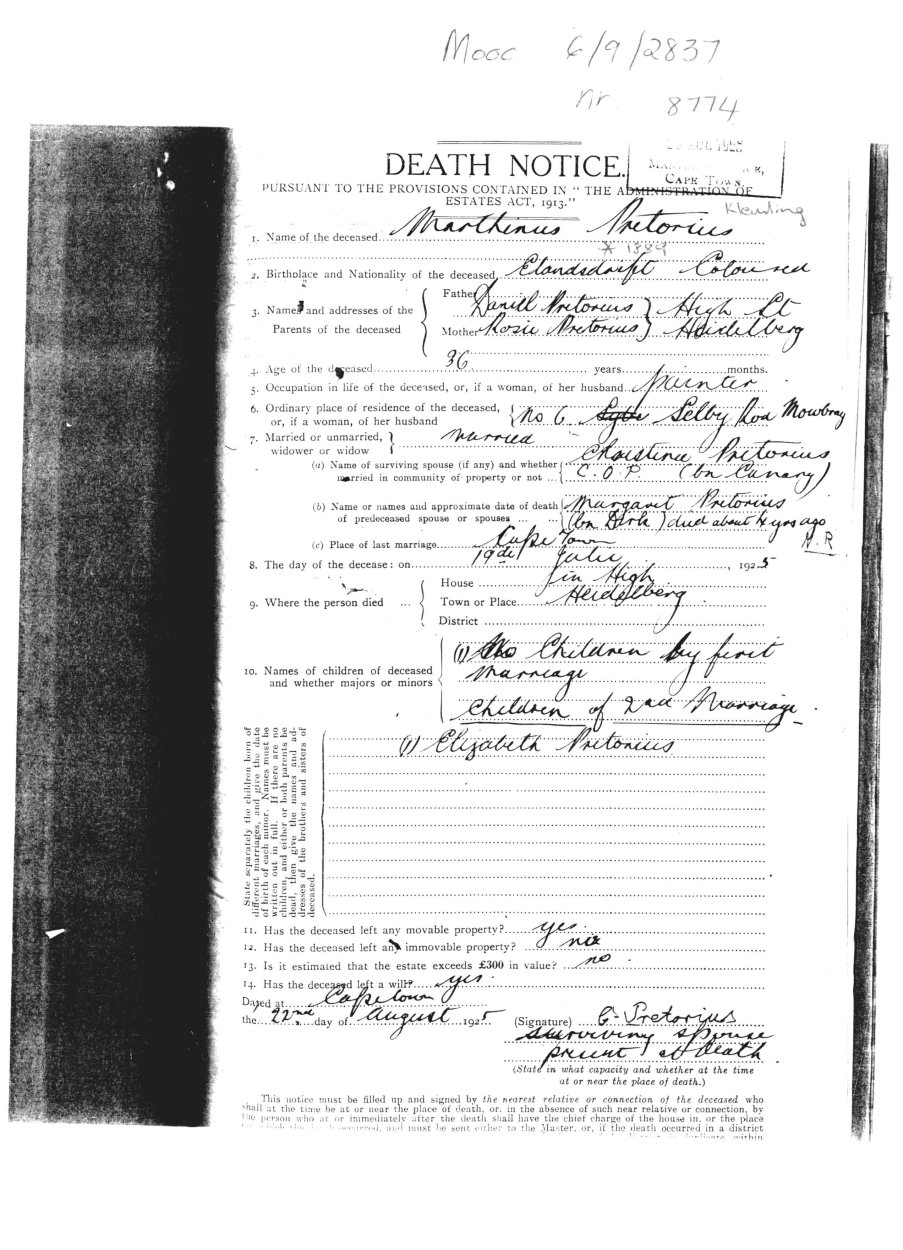 Mooc 6/9/2837
nr. 8774
CAPE TOWN.
DEATH NOTICE.
PURSUANT TO THE PROVISIONS CONTAINED IN "THE ADMINISTRATION OF
ESTATES ACT, 1913."
Kleurling
1. Name of the deceased Marthinus Pretorius
* 1889
2. Birthplace and Nationality of the deceased, Elandsdrift Coloured
3. Names and addresses of the Parents of the deceased
Father Daniel Pretorius } High St
Mother Rosie Pretorius } Heidelberg
4. Age of the deceased 36 years months.
5. Occupation in life of the deceased, or, if a woman, of her husband painter
6. Ordinary place of residence of the deceased, or, if a woman, of her husband { No 6 Selby Roa Mowbray
7. Married or unmarried, widower or widow } married
(a) Name of surviving spouse (if any) and whether married in community of property or not ... { Christina Pretorius
C.O.P. (bn Canary)
(b) Name or names and approximate date of death of predeceased spouse or spouses ... ... { Margaret Pretorius
(bn Dirk) died about 4 yrs ago
(c) Place of last marriage Cape Town
8. The day of the decease: on 19de Julie, 1925
9. Where the person died ...
House in High
Town or Place Heidelberg
District
10. Names of children of deceased and whether majors or minors
(1) No Children by first
marriage
Children of 2nd Marriage
State separately the children born of
different marriages, and give the date
of birth of each minor. Names must be
written out in full. If there are no
children, and either or both parents be
dead, then give the names and ad-
dresses of the brothers and sisters of
deceased.
(1) Elizabeth Pretorius
11. Has the deceased left any movable property? yes.
12. Has the deceased left any immovable property? no
13. Is it estimated that the estate exceeds £300 in value? no
14. Has the deceased left a will? yes.
Dated at Capetown
the 22nd day of August 1925 (Signature) C. Pretorius
surviving spouse
present at death
(State in what capacity and whether at the time
at or near the place of death.)
This notice must be filled up and signed by the nearest relative or connection of the deceased who
shall at the time be at or near the place of death, or, in the absence of such near relative or connection, by
the person who at or immediately after the death shall have the chief charge of the house in, or the place
occurred, and must be sent either to the Master, or, if the death occurred in a district